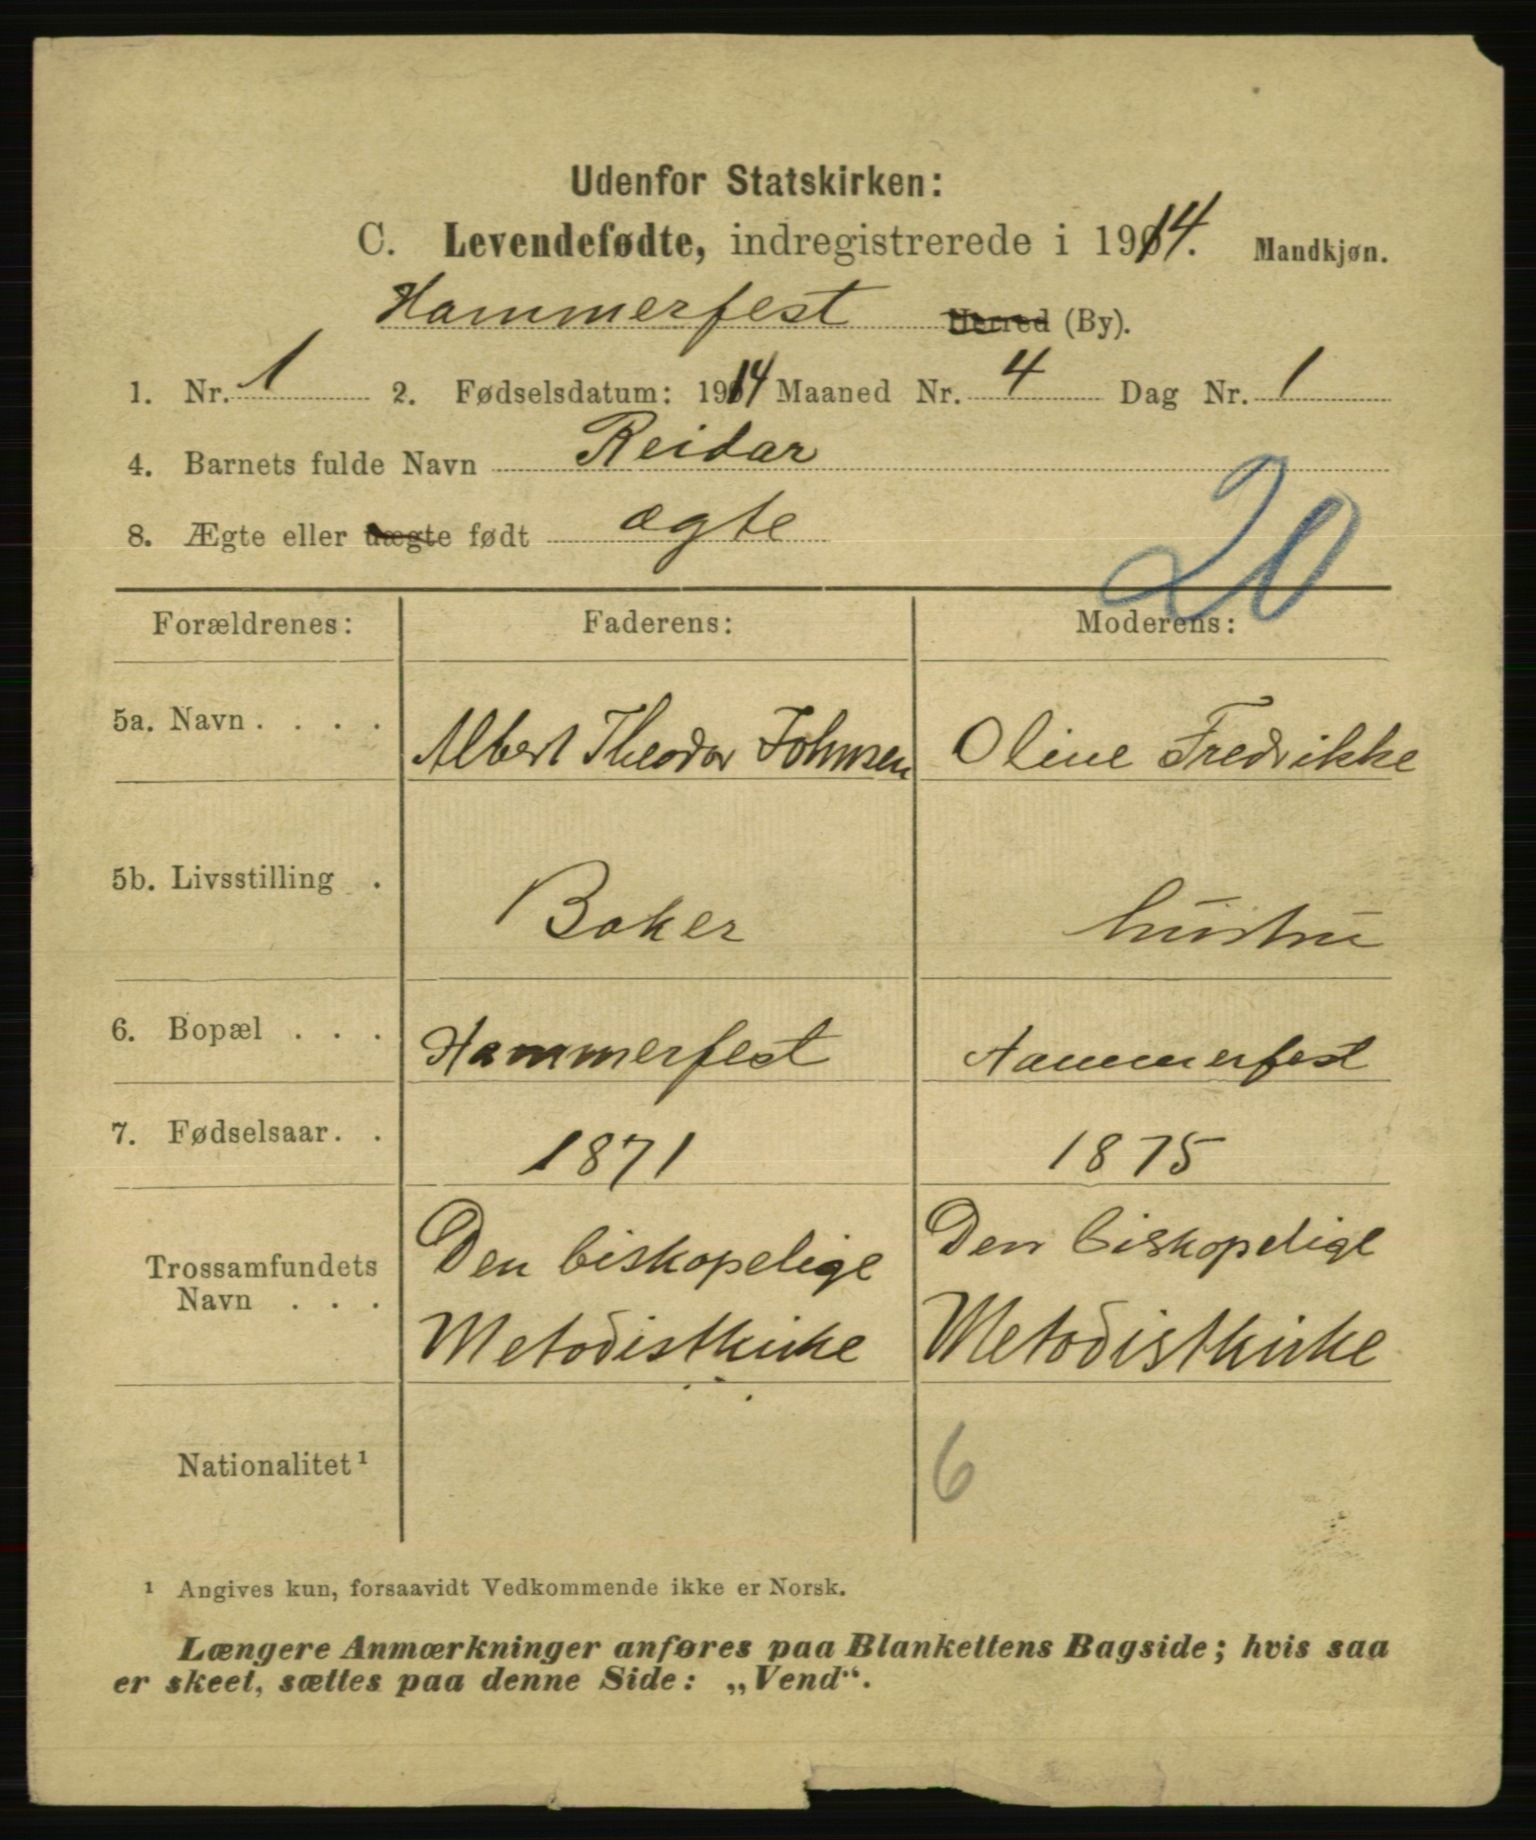 Udenfor Statskirken:
C. Levendefødte, indregistrerede i 1914. Mandkjøn.
Hammerfest Herred (By).
1. Nr. 1 2. Fødselsdatum: 1914 Maaned Nr. 4 Dag Nr. 1
4. Barnets fulde Navn Reidar
8. Ægte eller uægte født ægte
20
Forældrenes: Faderens: Moderens:
5a. Navn . . . . Albert Theodor Johnsen Oline Fredrikke
5b. Livsstilling . Baker hustru
6. Bopæl . . . Hammerfest Hammerfest
7. Fødselsaar. . 1871 1875
Trossamfundets Navn . . . Den biskopelige Metodistkirke Den biskopelige Metodistkirke
Nationalitet¹ 6
¹ Angives kun, forsaavidt Vedkommende ikke er Norsk.
Længere Anmærkninger anføres paa Blankettens Bagside; hvis saa
er skeet, sættes paa denne Side: „Vend“.